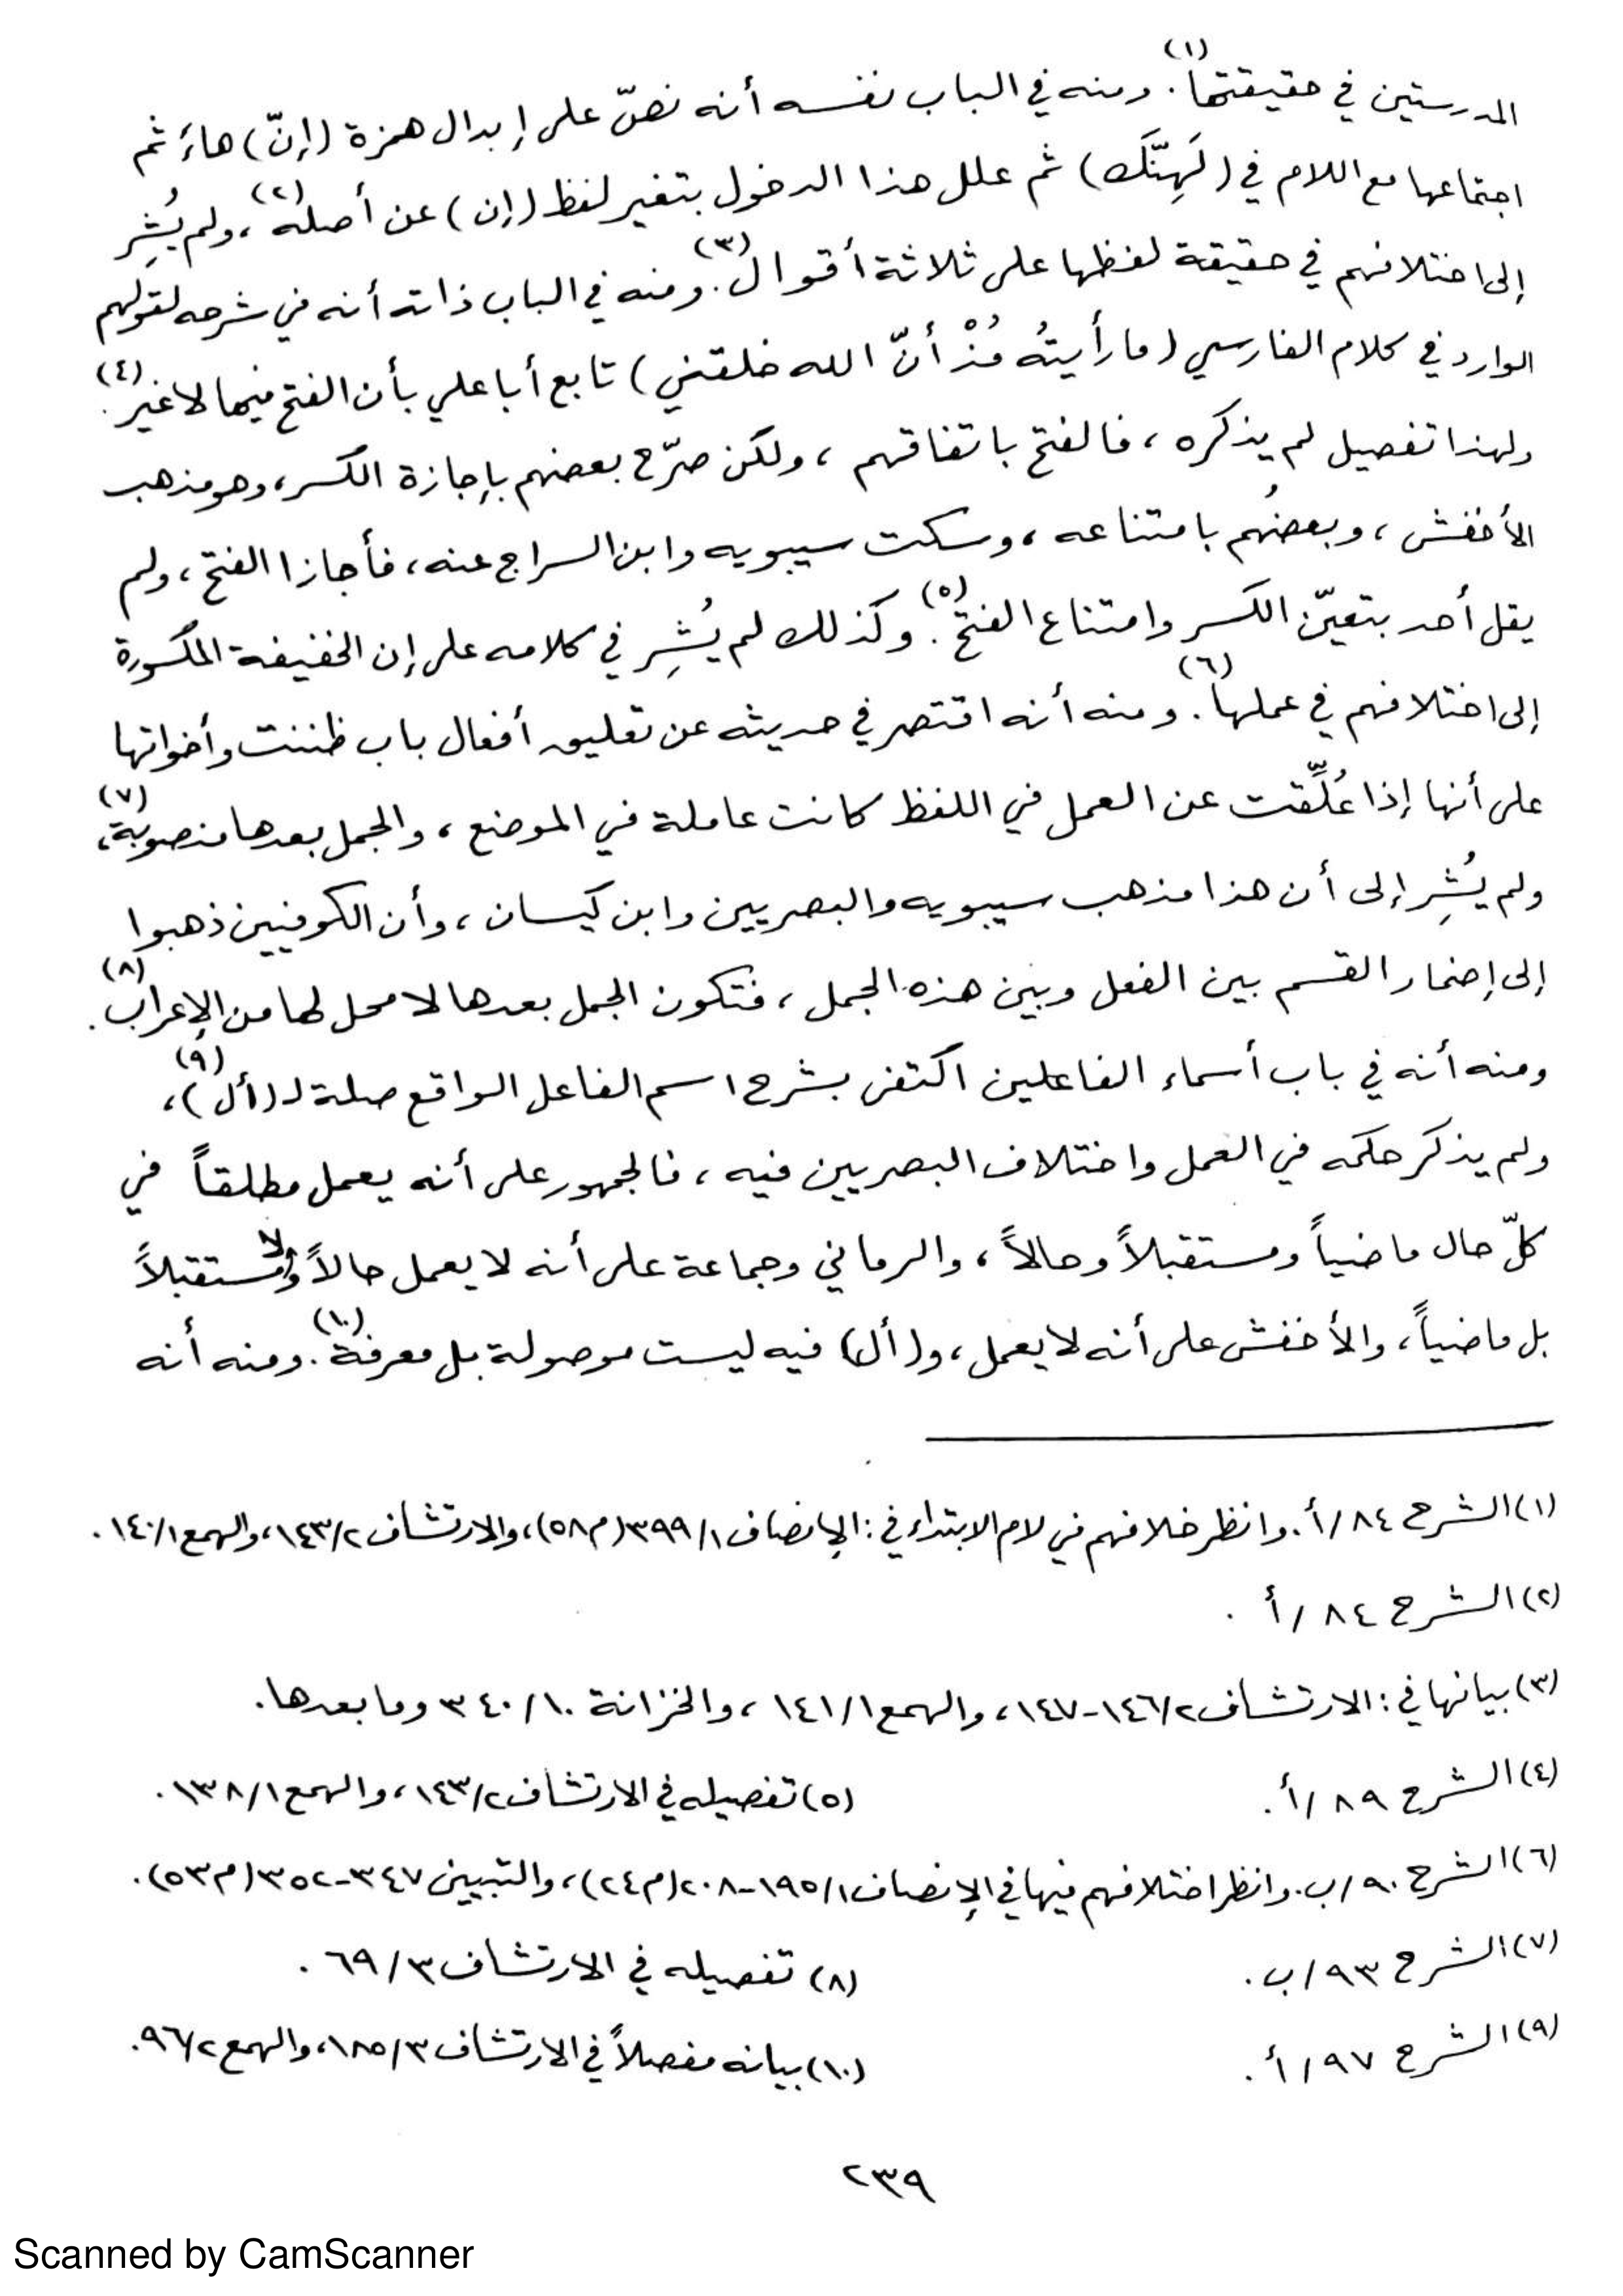 المدرستين في حقيقتها(١). ومنه في الباب نفسه أنه نصّ على إبدال همزة (إنّ) هاءً ثم
اجتماعها مع اللام في (لَهِنّكَ) ثم علل هذا الدخول بتغير لفظ (إن) عن أصله(٢)، ولم يُشِر
إلى اختلافهم في حقيقة لفظها على ثلاثة أقوال(٣). ومنه في الباب ذاته أنه في شرحه لقولهم
الوارد في كلام الفارسي (ما رأيتُه مُذْ أنّ الله خلقني) تابع أبا علي بأن الفتح فيها لا غير(٤).
ولهذا تفصيل لم يذكره، فالفتح باتفاقهم، ولكن صرّح بعضهم بإجازة الكسر، وهو مذهب
الأخفش، وبعضُهم بامتناعه، وسكت سيبويه وابن السراج عنه، فأجازا الفتح، ولم
يقل أحد بتعيّن الكسر وامتناع الفتح(٥). وكذلك لم يُشِر في كلامه على إن الخفيفة المكسورة
إلى اختلافهم في عملها(٦). ومنه أنه اقتصر في حديثه عن تعليق أفعال باب ظننت وأخواتها
على أنها إذا عُلِّقت عن العمل في اللفظ كانت عاملة في الموضع، والجمل بعدها منصوبة(٧)،
ولم يُشِر إلى أن هذا مذهب سيبويه والبصريين وابن كيسان، وأن الكوفيين ذهبوا
إلى إضمار القسم بين الفعل وبين هذه الجمل، فتكون الجمل بعدها لا محل لها من الإعراب(٨).
ومنه أنه في باب أسماء الفاعلين اكتفى بشرح اسم الفاعل الواقع صلة لـ(أل)(٩)،
ولم يذكر حكمه في العمل واختلاف البصريين فيه، فالجمهور على أنه يعمل مطلقاً في
كلّ حال ماضياً ومستقبلاً وحالاً، والرماني وجماعة على أنه لا يعمل حالاً ولا مستقبلاً
بل ماضياً، والأخفش على أنه لا يعمل، و(أل) فيه ليست موصولة بل معرفة(١٠). ومنه أنه
(١) الشرح ٨٤/أ. وانظر خلافهم في لام الابتداء في: الإنصاف ٣٩٩/١ (م٥٨)، والارتشاف ١٤٣/٢، والهمع ١٤٠/١.
(٢) الشرح ٨٤/أ.
(٣) بيانها في: الارتشاف ١٤٦/٢-١٤٧، والهمع ١٤١/١، والخزانة ٣٤٠/١٠ وما بعدها.
(٤) الشرح ٨٩/أ. (٥) تفصيله في الارتشاف ١٤٣/٢، والهمع ١٣٨/١.
(٦) الشرح ٩٠/ب. وانظر اختلافهم فيها في الإنصاف ١٩٥/١-٢٠٨ (م٢٤)، والتبيين ٣٤٧-٣٥٢ (م٥٣).
(٧) الشرح ٩٣/ب. (٨) تفصيله في الارتشاف ٦٩/٣.
(٩) الشرح ٩٧/أ. (١٠) بيانه مفصلاً في الارتشاف ١٨٥/٣، والهمع ٩٦/٢.
٢٣٩
Scanned by CamScanner